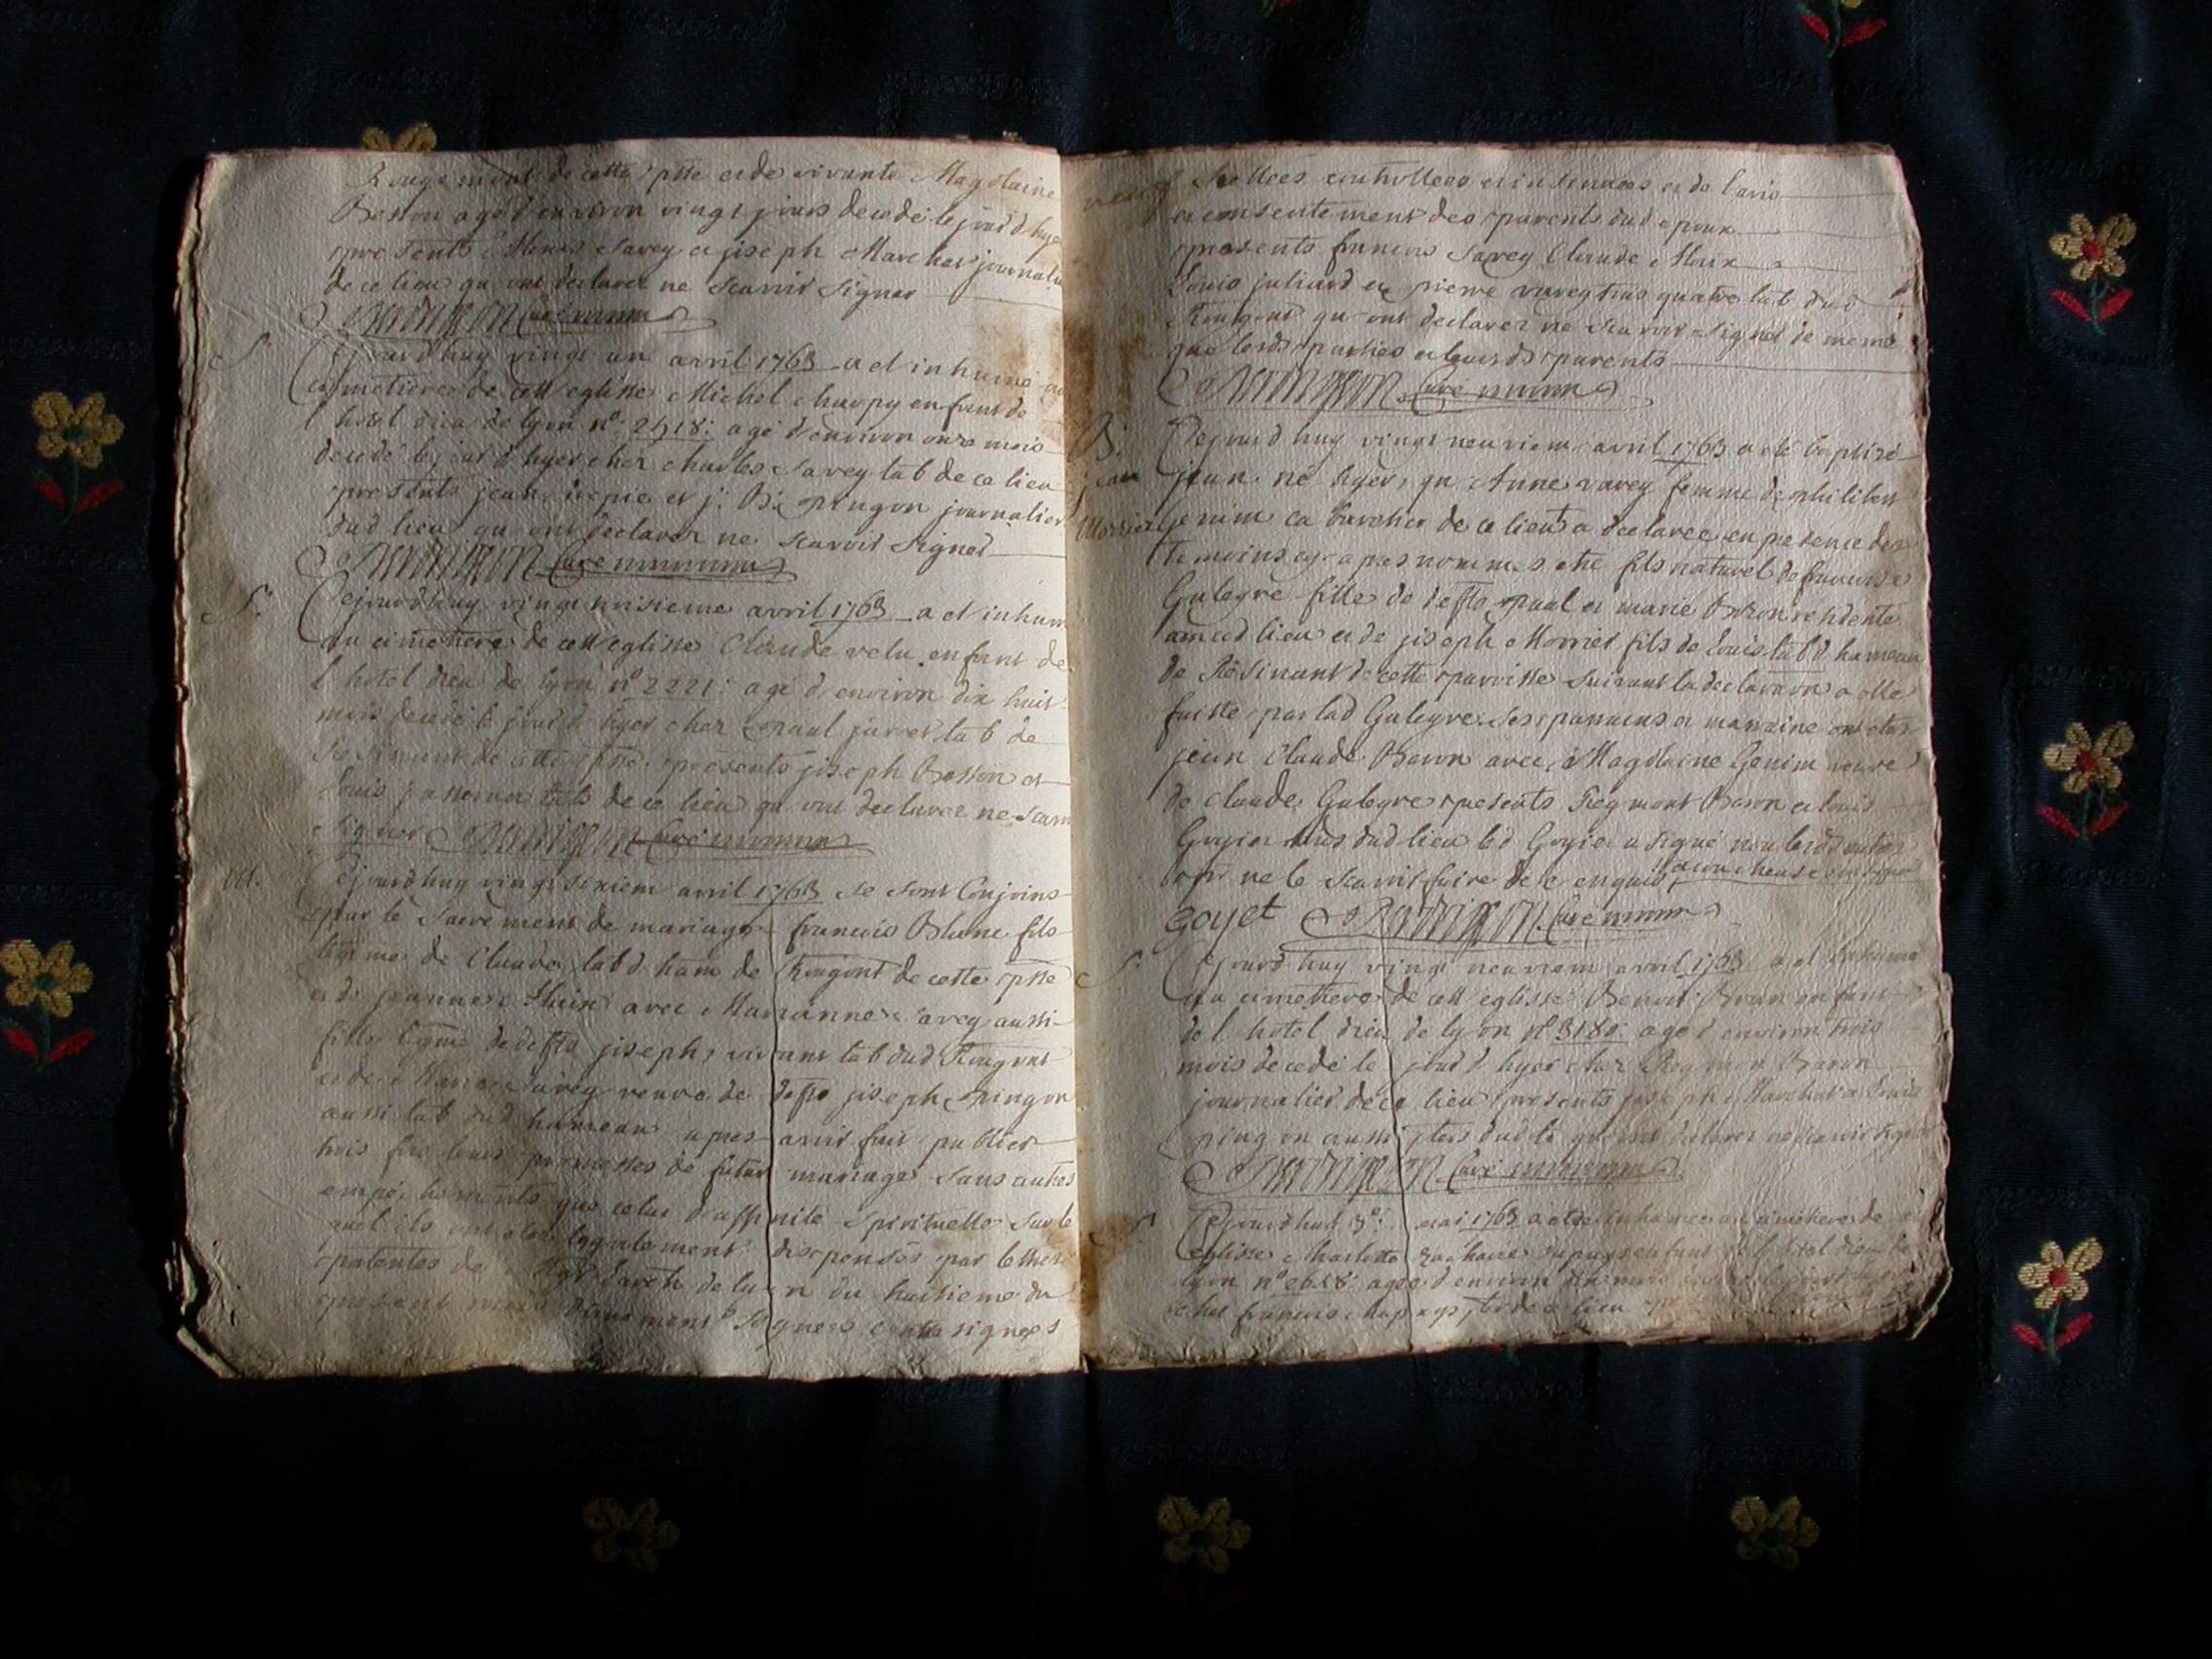 Rougemont de cette psse et de vivante Magdlaine
Besson agé d'environ vingt jours decedé le jourd'hyer
presents Savey et joseph Marchat journali
de ce lieu qu'ont declarez ne scavoir signer
Curé
S. Cejourd'huy vingt un avril 1763 a et inhumé au
cimetiere de cett eglisse Michel Charpy enfant de
l'hotel dieu de lyon n°: 2418: agé d'environ onze mois
decedé le jourd'hyer chez charles Savey lab de ce lieu
presents jean et j: B: pingon journalier
dud lieu qu'ont declarez ne scavoir signer
Curé
S. Cejourd'huy vingt troisieme avril 1763 a et inhum
au cimetiere de cett eglisse Claude velu enfant de
l'hotel dieu de lyon n° 2221: agé d'environ dix huit
mois decedé le jourd'hyer chez paul jarret lab de
Resinant de cette psse presents joseph Besson et
Louis janneron labs de ce lieu qu'ont declarez ne scavo
signer Curé
M. Cejourd'huy vingt sixiem avril 1763 se sont Conjoins
par le Sacrement de mariage francois Blanc fils
de Claude lab d. ham de Rougont de cette psse
et de jeanne avec Marianne Savey aussi
fille de deffo joseph vivant lab dud Rougont
et de Savey veuve de deffo joseph pingon
aussi lab dud hameau apres avoir fait publier
trois fois leurs promesses de futur mariage sans autres
empéchements que celui d'affinité spirituelle sur le
quel ils ont etez legalement dispensés par lettres
patentes de Mgr l'arch de lyon du huitieme du
present mois duement signees contresignees
scellées controllees et insinuees et de l'avis
et consentement des parents dud epoux
presents francois Savey Claude
Louis juliard et pierre varey tous quatre lab dud
Rougont qu'ont declarez ne scavoir signer de meme
que lesds parties et leurs ds parents
Curé
B: Cejourd'huy vingt neuviem avril 1763 a eté baptisé
jean jean né hyer, qu'Anne varey femme de philibert
Morrier Genin ca de ce lieu a declarée en presence des
temoins cy apres nommes etre fils naturel de francoise
Galegre fille de deffo paul et marie residente
aud lieu et de joseph Morrier fils de Louis lab d. hameau
de Résinant de cette parroisse suivant la declaration a elle
faiste par lad Galegre. Ses parrains et marraine ont etes
jean Claude Baron avec Magdlaine Genin veuve
de claude Galegre presents Reymont Baron et louis
Goyet tous dud lieu led Goyet a signé non lesds autres
pour ne le scavoir faire de ce enquis
goyet Curé
S. Cejourd'huy vingt neuviem avril 1763 a et inhumé
au cimetiere de cett eglisse Benoit enfant
de l'hotel dieu de lyon n° 3180: agé d'environ trois
mois decedé le jourd'hyer chez Reymon Baron
journalier de ce lieu presents joseph Marchat et Louis
pingon aussi jters dud l. qu'ont declarez ne scavoir signer
Curé
S Cejourd'huy 3e: mai 1763 a eté inhumée au cimetiere de
eglisse Charlotte enfant de l'hotel dieu de
lyon n° 2658: agée d'environ
chez francois jter de ce lieu